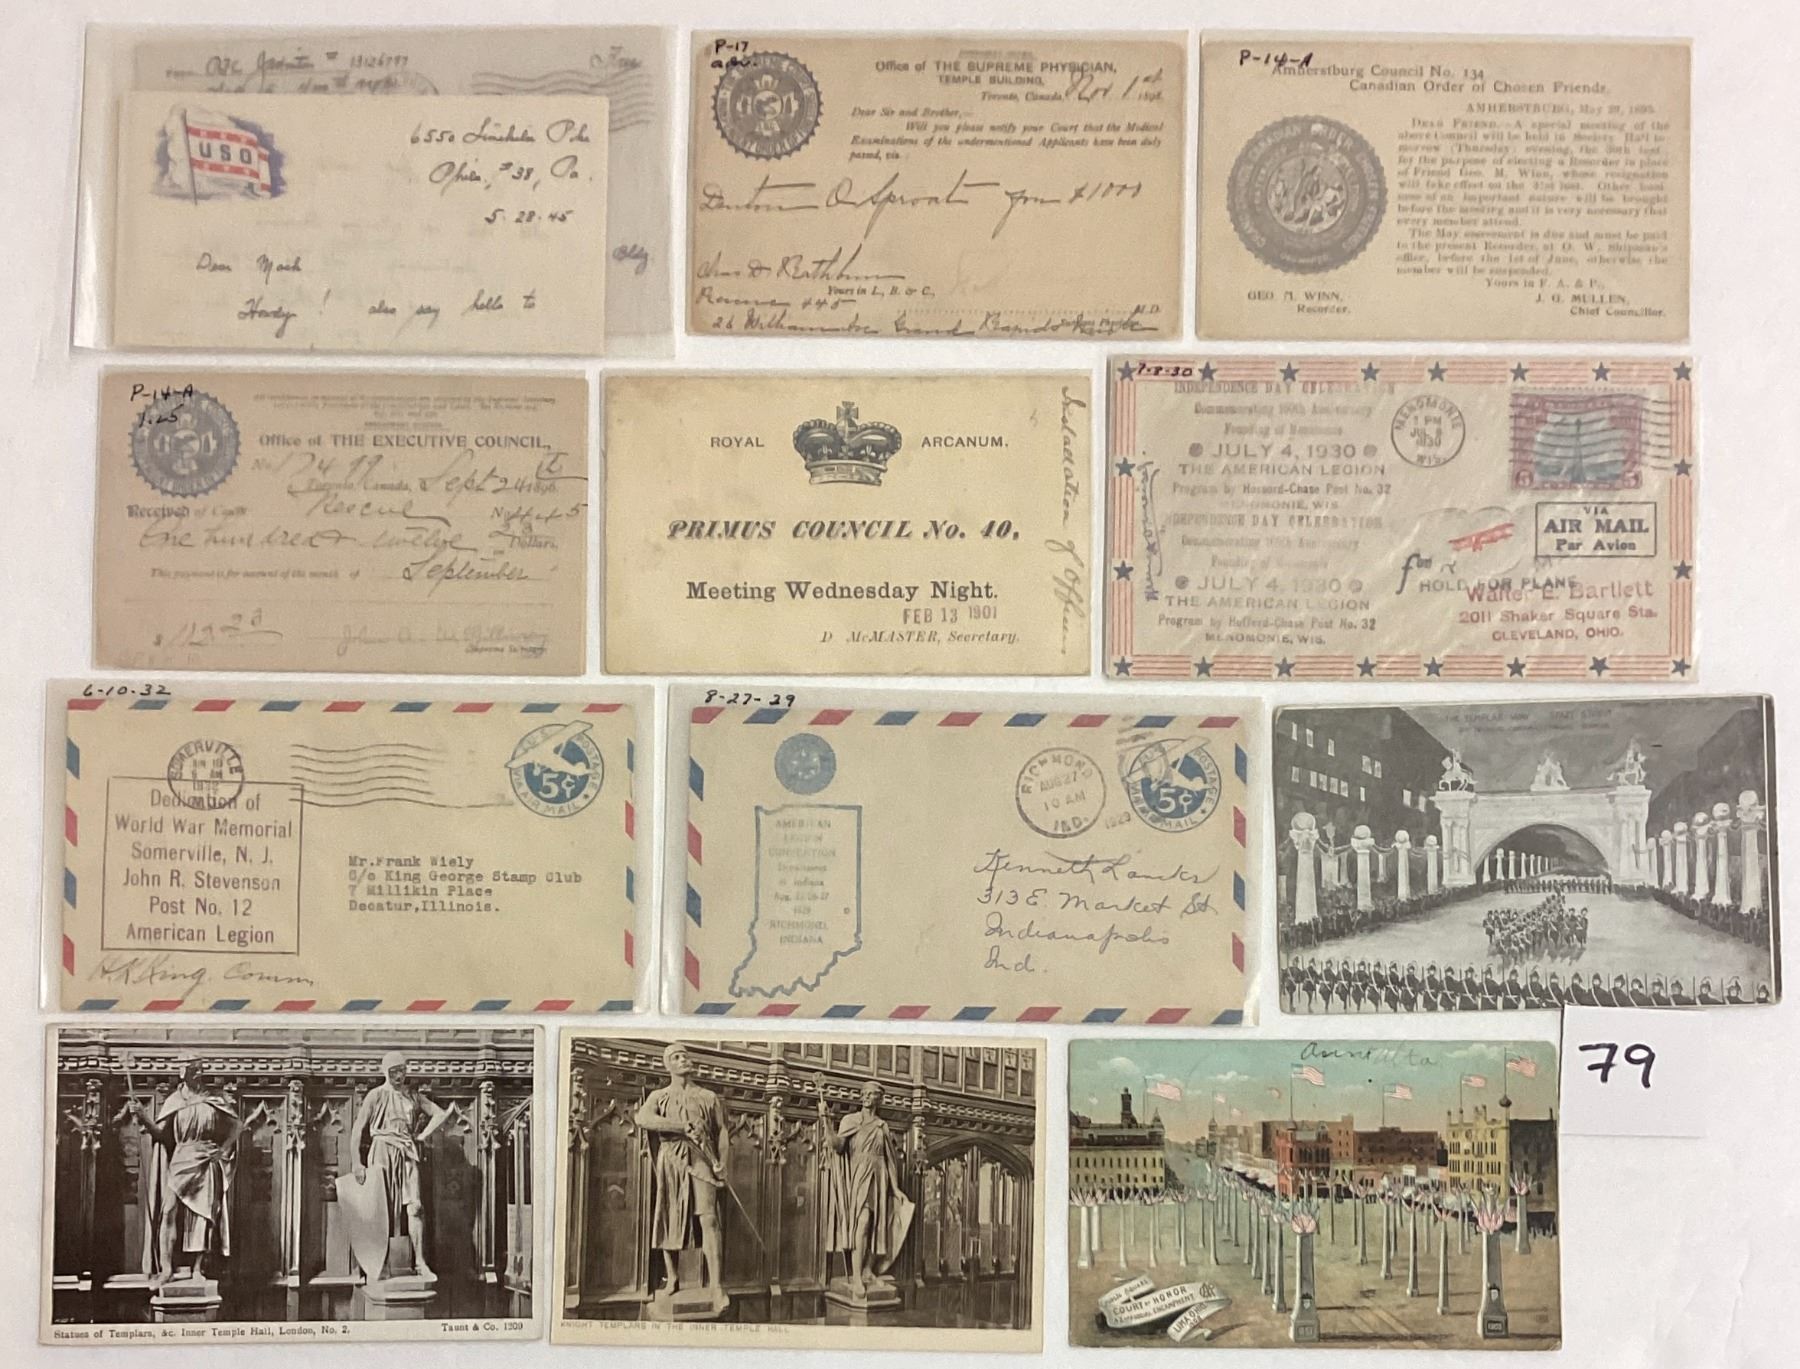 USO
6550
Phila, #38, Pa.
5-28-45
Dear Mack
Howdy! also say hello to
Bldg.
P-17
Office of THE SUPREME PHYSICIAN,
TEMPLE BUILDING,
Toronto, Canada, Nov 1st 1898.
Dear Sir and Brother,—
Will you please notify your Court that the Medical
Examinations of the undermentioned Applicants have been duly
passed, viz:
Denton O Sproat for $1000
Yours in L., B. & C.,
Rescue 445
M.D.
Grand Rapids
P-14-A
Amherstburg Council No. 134
Canadian Order of Chosen Friends.
AMHERSTBURG, May 29, 1895.
DEAR FRIEND,—A special meeting of the
above Council will be held in Society Hall to-
morrow (Thursday) evening, the 30th inst.,
for the purpose of electing a Recorder in place
of Friend Geo. M. Winn, whose resignation
will take effect on the 31st inst. Other busi-
ness of an important nature will be brought
before the meeting and it is very necessary that
every member attend.
The May assessment is due and must be paid
to the present Recorder, at O. W. Shipman's
office, before the 1st of June, otherwise the
member will be suspended.
Yours in F. A. & P.,
GEO. M. WINN,
Recorder.
J. G. MULLEN,
Chief Councillor.
P-14-A
1.25
Office of THE EXECUTIVE COUNCIL,
Toronto, Canada, Sept 24th 1896
Received of Court Rescue No 445
One hundred & twelve 23 Dollars,
This payment is for account of the month of September
$112.23
ROYAL ARCANUM.
PRIMUS COUNCIL No. 40,
Meeting Wednesday Night.
FEB 13 1901
D. McMASTER, Secretary.
Installation of Officers
7-8-30
INDEPENDENCE DAY CELEBRATION
Commemorating 100th Anniversary
Founding of Menomonie
JULY 4, 1930
THE AMERICAN LEGION
Program by Hosford-Chase Post No. 32
MENOMONIE, WIS.
INDEPENDENCE DAY CELEBRATION
Commemorating 100th Anniversary
Founding of Menomonie
JULY 4, 1930
THE AMERICAN LEGION
Program by Hosford-Chase Post No. 32
MENOMONIE, WIS.
MENOMONIE
1 PM
JUL 8
1930
WIS.
5
VIA
AIR MAIL
Par Avion
HOLD FOR PLANE
Walter E. Bartlett
2011 Shaker Square Sta.
CLEVELAND, OHIO.
6-10-32
SOMERVILLE
1932
Dedication of
World War Memorial
Somerville, N. J.
John R. Stevenson
Post No. 12
American Legion
H.K. King. Comm.
U.S. POSTAGE
5¢
VIA AIR MAIL
Mr.Frank Wiely
C/o King George Stamp Club
7 Millikin Place
Decatur,Illinois.
8-27-29
AMERICAN
LEGION
CONVENTION
Department
of Indiana
Aug. 25-26-27
1929
RICHMOND,
INDIANA
RICHMOND
AUG 27
10 AM
1929
IND.
POSTAGE
5¢
VIA AIR MAIL
Kenneth Lancks
313 E. Market St
Indianapolis
Ind.
THE TEMPLAR WAY STATE STREET
Statues of Templars, &c. Inner Temple Hall, London, No. 2.
Taunt & Co. 1209
KNIGHT TEMPLARS IN THE INNER TEMPLE HALL
Aunt Alta
PUBLIC SQUARE
COURT OF HONOR
ENCAMPMENT
LIMA, OHIO
79